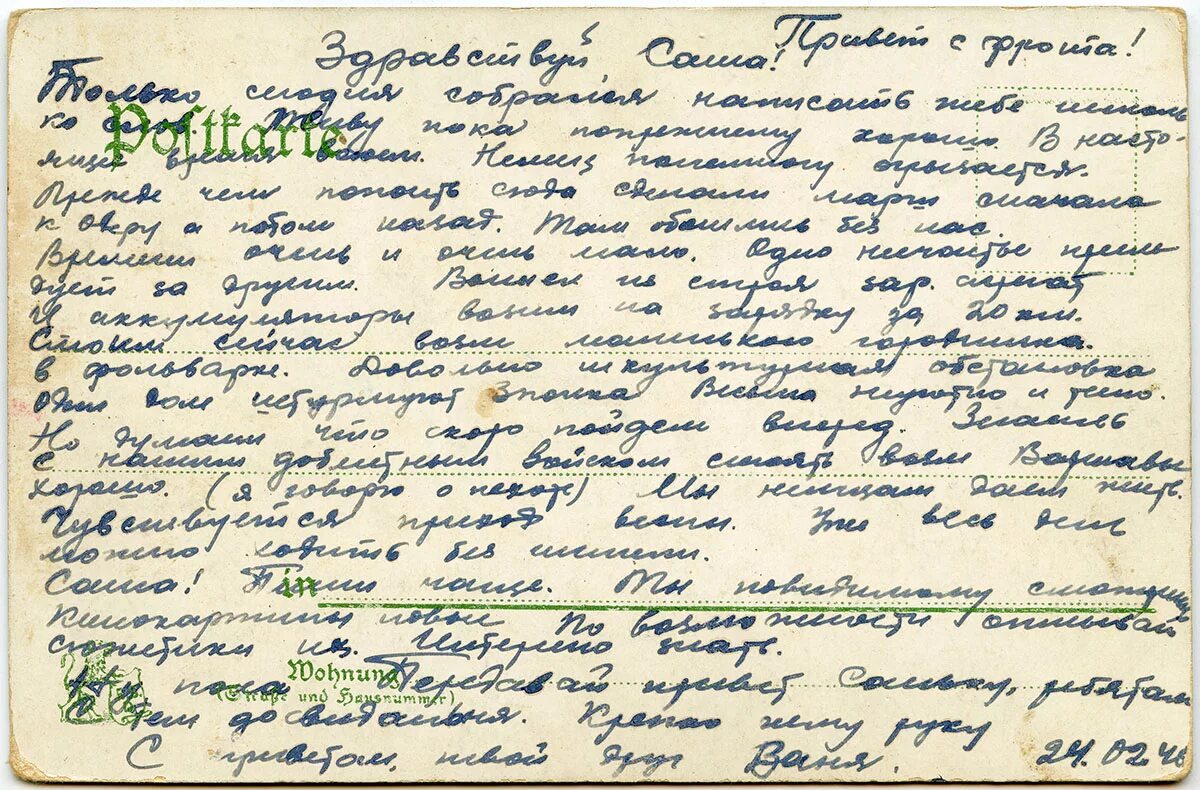 Привет с фронта!
Здравствуй, Саша!
Только сегодня собрался написать тебе несколь
ко слов. Живу пока попрежнему хорошо. В насто-
Postkarte
ящее время воюем. Немец понемногу огрызается.
Прежде чем попасть сюда сделали марш сначала
к Одеру а потом назад. Там обошлись без нас.
Времени очень и очень мало. Одно несчастье следует
дует за другим. Вышел из строя зар. агрегат
И аккумуляторы возим на зарядку за 20 км.
Стоим сейчас возле маленького городишка.
в фольварке. Довольно некультурная обстановка
Один дом штурмуют 3 полка. Весьма неуютно и тесно.
Но думаем что скоро пойдем вперед. Знаешь
с нашим доблестным войском стоять возле Варшавы
хорошо. (я говорю о пехоте) Мы немцам даем жить.
Чувствуется приход весны. Уже весь день
можно ходить без шинели.
Саша! Пиши чаще. Мы повидимому смотрим
in
кинокартины новые По возможности описывай
сюжетики их. Интересно знать.
Wohnung
(Straße und Hausnummer)
Ну пока. Передавай привет Саньку, ребятам
С тем до свидания. Крепко жму руку
С приветом, твой друг Ваня. 24.02.45